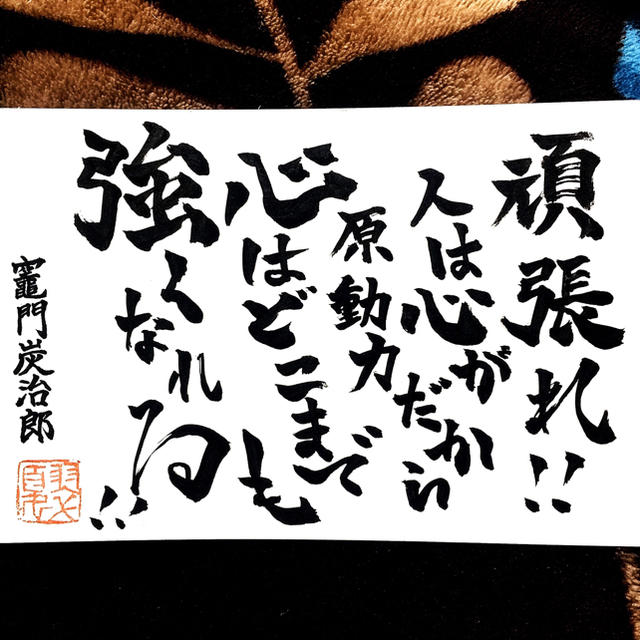 頑張れ!!
人は心が
原動力だから
心はどこまでも
強くなれる!!
竈門炭治郎